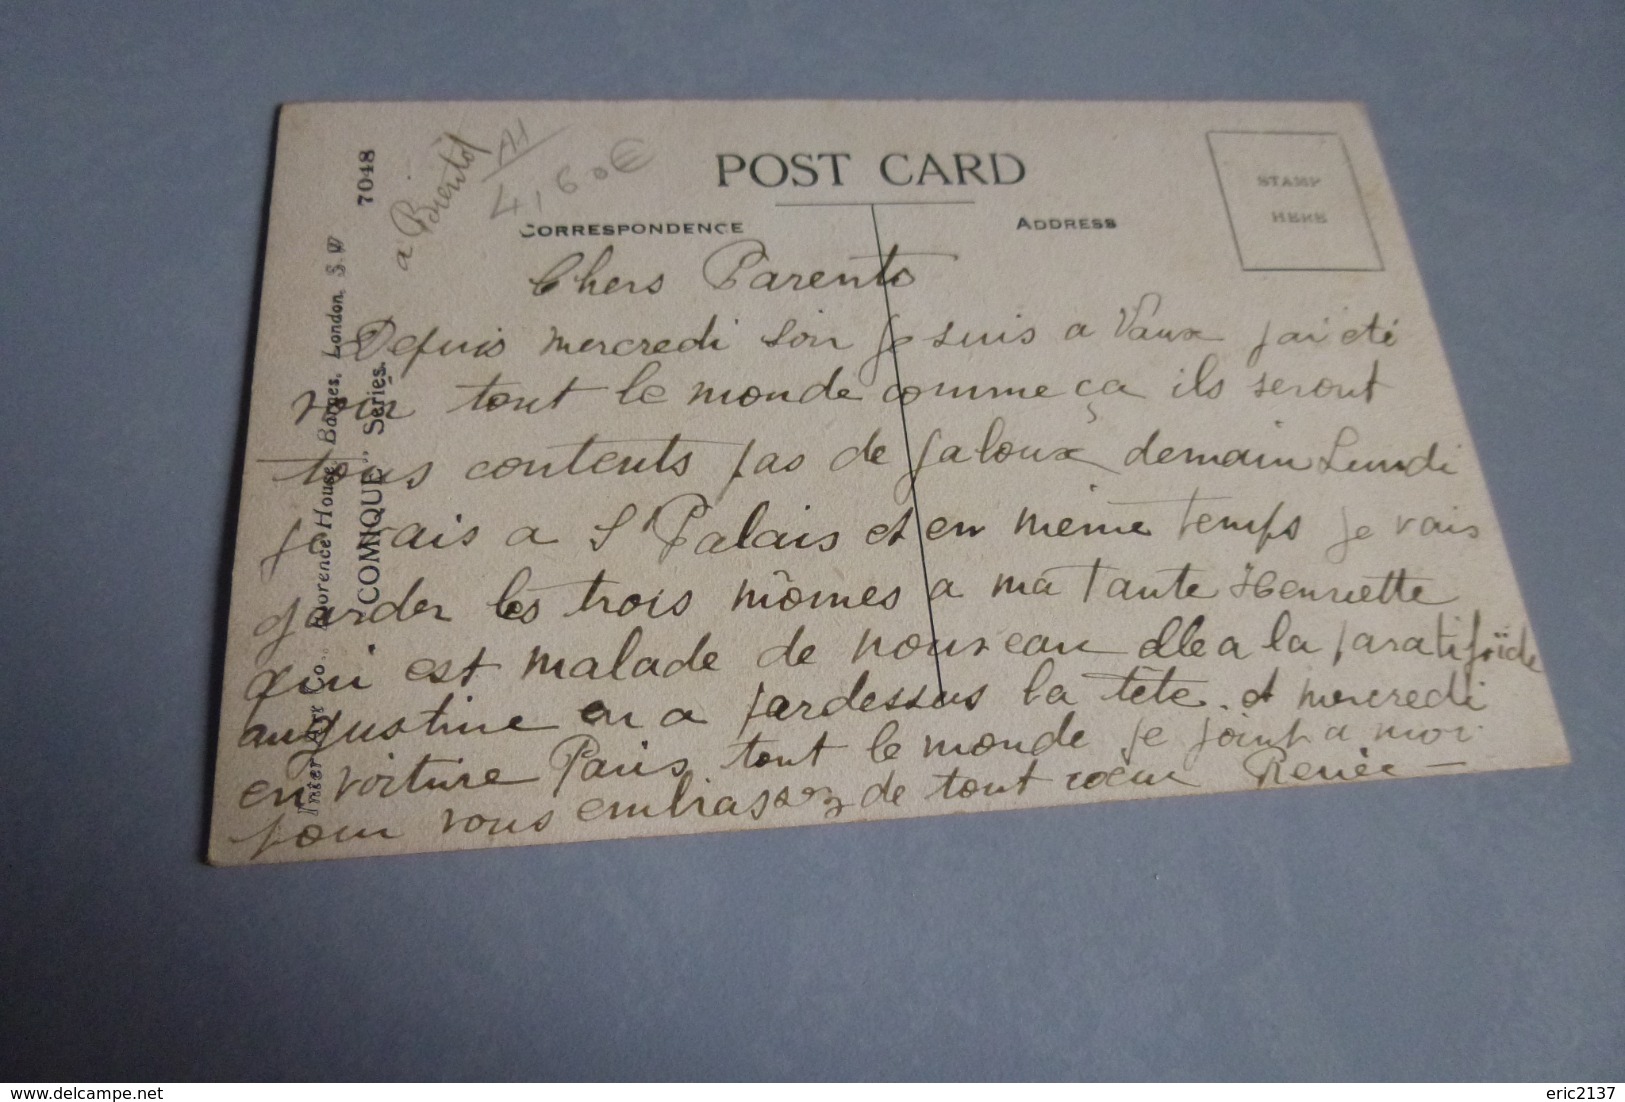 POST CARD
CORRESPONDENCE
ADDRESS
STAMP
HERE
7048
"COMIQUE" Series.
Inter Art Co., Florence House, Barnes, London, S.W
à
A1
4,60€
Chers Parents
Depuis mercredi soir je suis a Vaux j'ai été
voir tout le monde comme ça ils seront
tous contents pas de jaloux demain Lundi
je vais a St Palais et en même temps je vais
garder les trois mômes a ma Tante Henriette
qui est malade de nouveau elle a la paratifoïde
augustine en a pardessus la tête. et mercredi
en voiture Paris tout le monde se joint a moi
pour vous embrasser de tout cœur Renée –
delcampe.net
eric2137